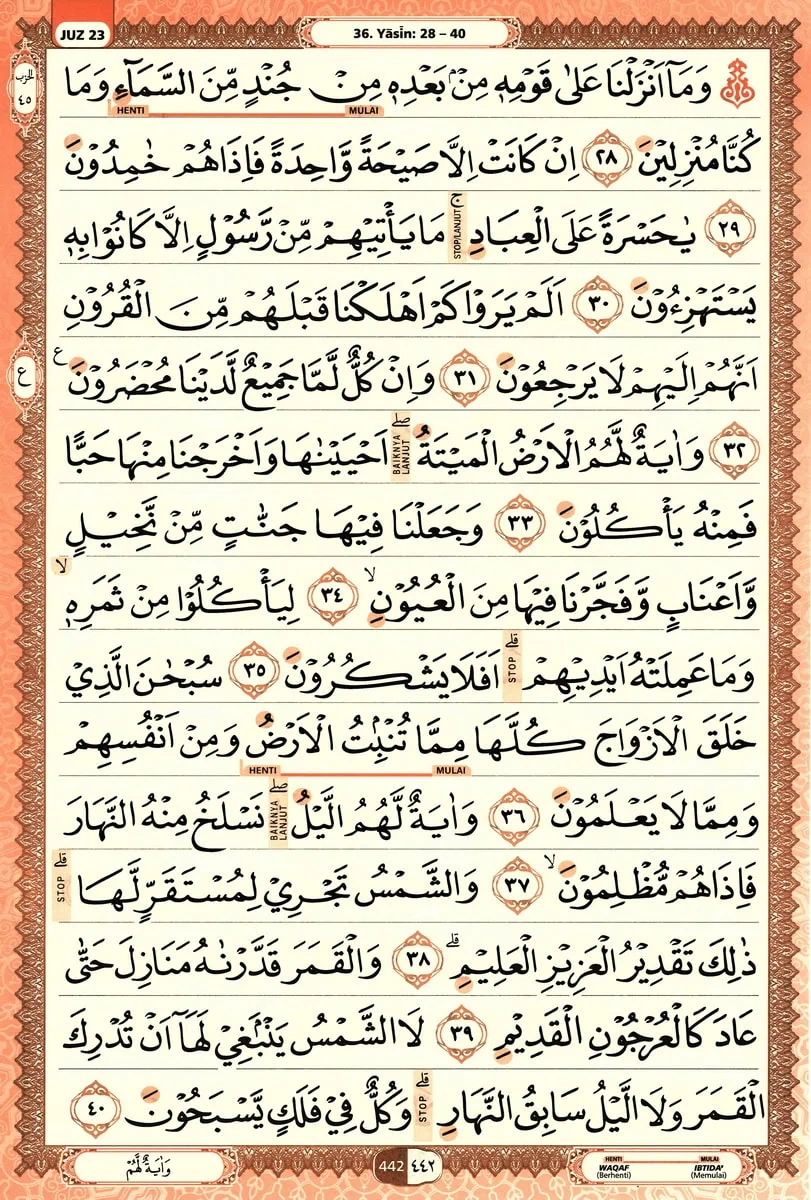 JUZ 23
36. Yāsīn: 28 – 40
الحزب
٤٥
وَمَآ اَنْزَلْنَا عَلٰى قَوْمِهٖ مِنْۢ بَعْدِهٖ مِنْ جُنْدٍ مِّنَ السَّمَاۤءِ وَمَا
HENTI MULAI
كُنَّا مُنْزِلِيْنَ ٢٨ اِنْ كَانَتْ اِلَّا صَيْحَةً وَّاحِدَةً فَاِذَا هُمْ خٰمِدُوْنَ
٢٩ يٰحَسْرَةً عَلَى الْعِبَادِۚ STOP/LANJUT مَا يَأْتِيْهِمْ مِّنْ رَّسُوْلٍ اِلَّا كَانُوْا بِهٖ
يَسْتَهْزِءُوْنَ ٣٠ اَلَمْ يَرَوْا كَمْ اَهْلَكْنَا قَبْلَهُمْ مِّنَ الْقُرُوْنِ
ع
اَنَّهُمْ اِلَيْهِمْ لَا يَرْجِعُوْنَ ٣١ وَاِنْ كُلٌّ لَّمَّا جَمِيْعٌ لَّدَيْنَا مُحْضَرُوْنَ ع
٣٢ وَاٰيَةٌ لَّهُمُ الْاَرْضُ الْمَيْتَةُۖ BAIKNYA LANJUT اَحْيَيْنٰهَا وَاَخْرَجْنَا مِنْهَا حَبًّا
فَمِنْهُ يَأْكُلُوْنَ ٣٣ وَجَعَلْنَا فِيْهَا جَنّٰتٍ مِّنْ نَّخِيْلٍ
وَّاَعْنَابٍ وَّفَجَّرْنَا فِيْهَا مِنَ الْعُيُوْنِۙ ٣٤ لِيَأْكُلُوْا مِنْ ثَمَرِهٖۙ
وَمَا عَمِلَتْهُ اَيْدِيْهِمْۗ STOP اَفَلَا يَشْكُرُوْنَ ٣٥ سُبْحٰنَ الَّذِيْ
خَلَقَ الْاَزْوَاجَ كُلَّهَا مِمَّا تُنْۢبِتُ الْاَرْضُ وَمِنْ اَنْفُسِهِمْ
HENTI MULAI
وَمِمَّا لَا يَعْلَمُوْنَ ٣٦ وَاٰيَةٌ لَّهُمُ الَّيْلُۖ BAIKNYA LANJUT نَسْلَخُ مِنْهُ النَّهَارَ
فَاِذَا هُمْ مُّظْلِمُوْنَۙ ٣٧ وَالشَّمْسُ تَجْرِيْ لِمُسْتَقَرٍّ لَّهَاۗ STOP
ذٰلِكَ تَقْدِيْرُ الْعَزِيْزِ الْعَلِيْمِۗ ٣٨ وَالْقَمَرَ قَدَّرْنٰهُ مَنَازِلَ حَتّٰى
عَادَ كَالْعُرْجُوْنِ الْقَدِيْمِ ٣٩ لَا الشَّمْسُ يَنْۢبَغِيْ لَهَآ اَنْ تُدْرِكَ
الْقَمَرَ وَلَا الَّيْلُ سَابِقُ النَّهَارِۗ STOP وَكُلٌّ فِيْ فَلَكٍ يَّسْبَحُوْنَ ٤٠
وَاٰيَةٌ لَّهُمْ
442 ٤٤٢
HENTI MULAI
WAQAF IBTIDA'
(Berhenti) (Memulai)